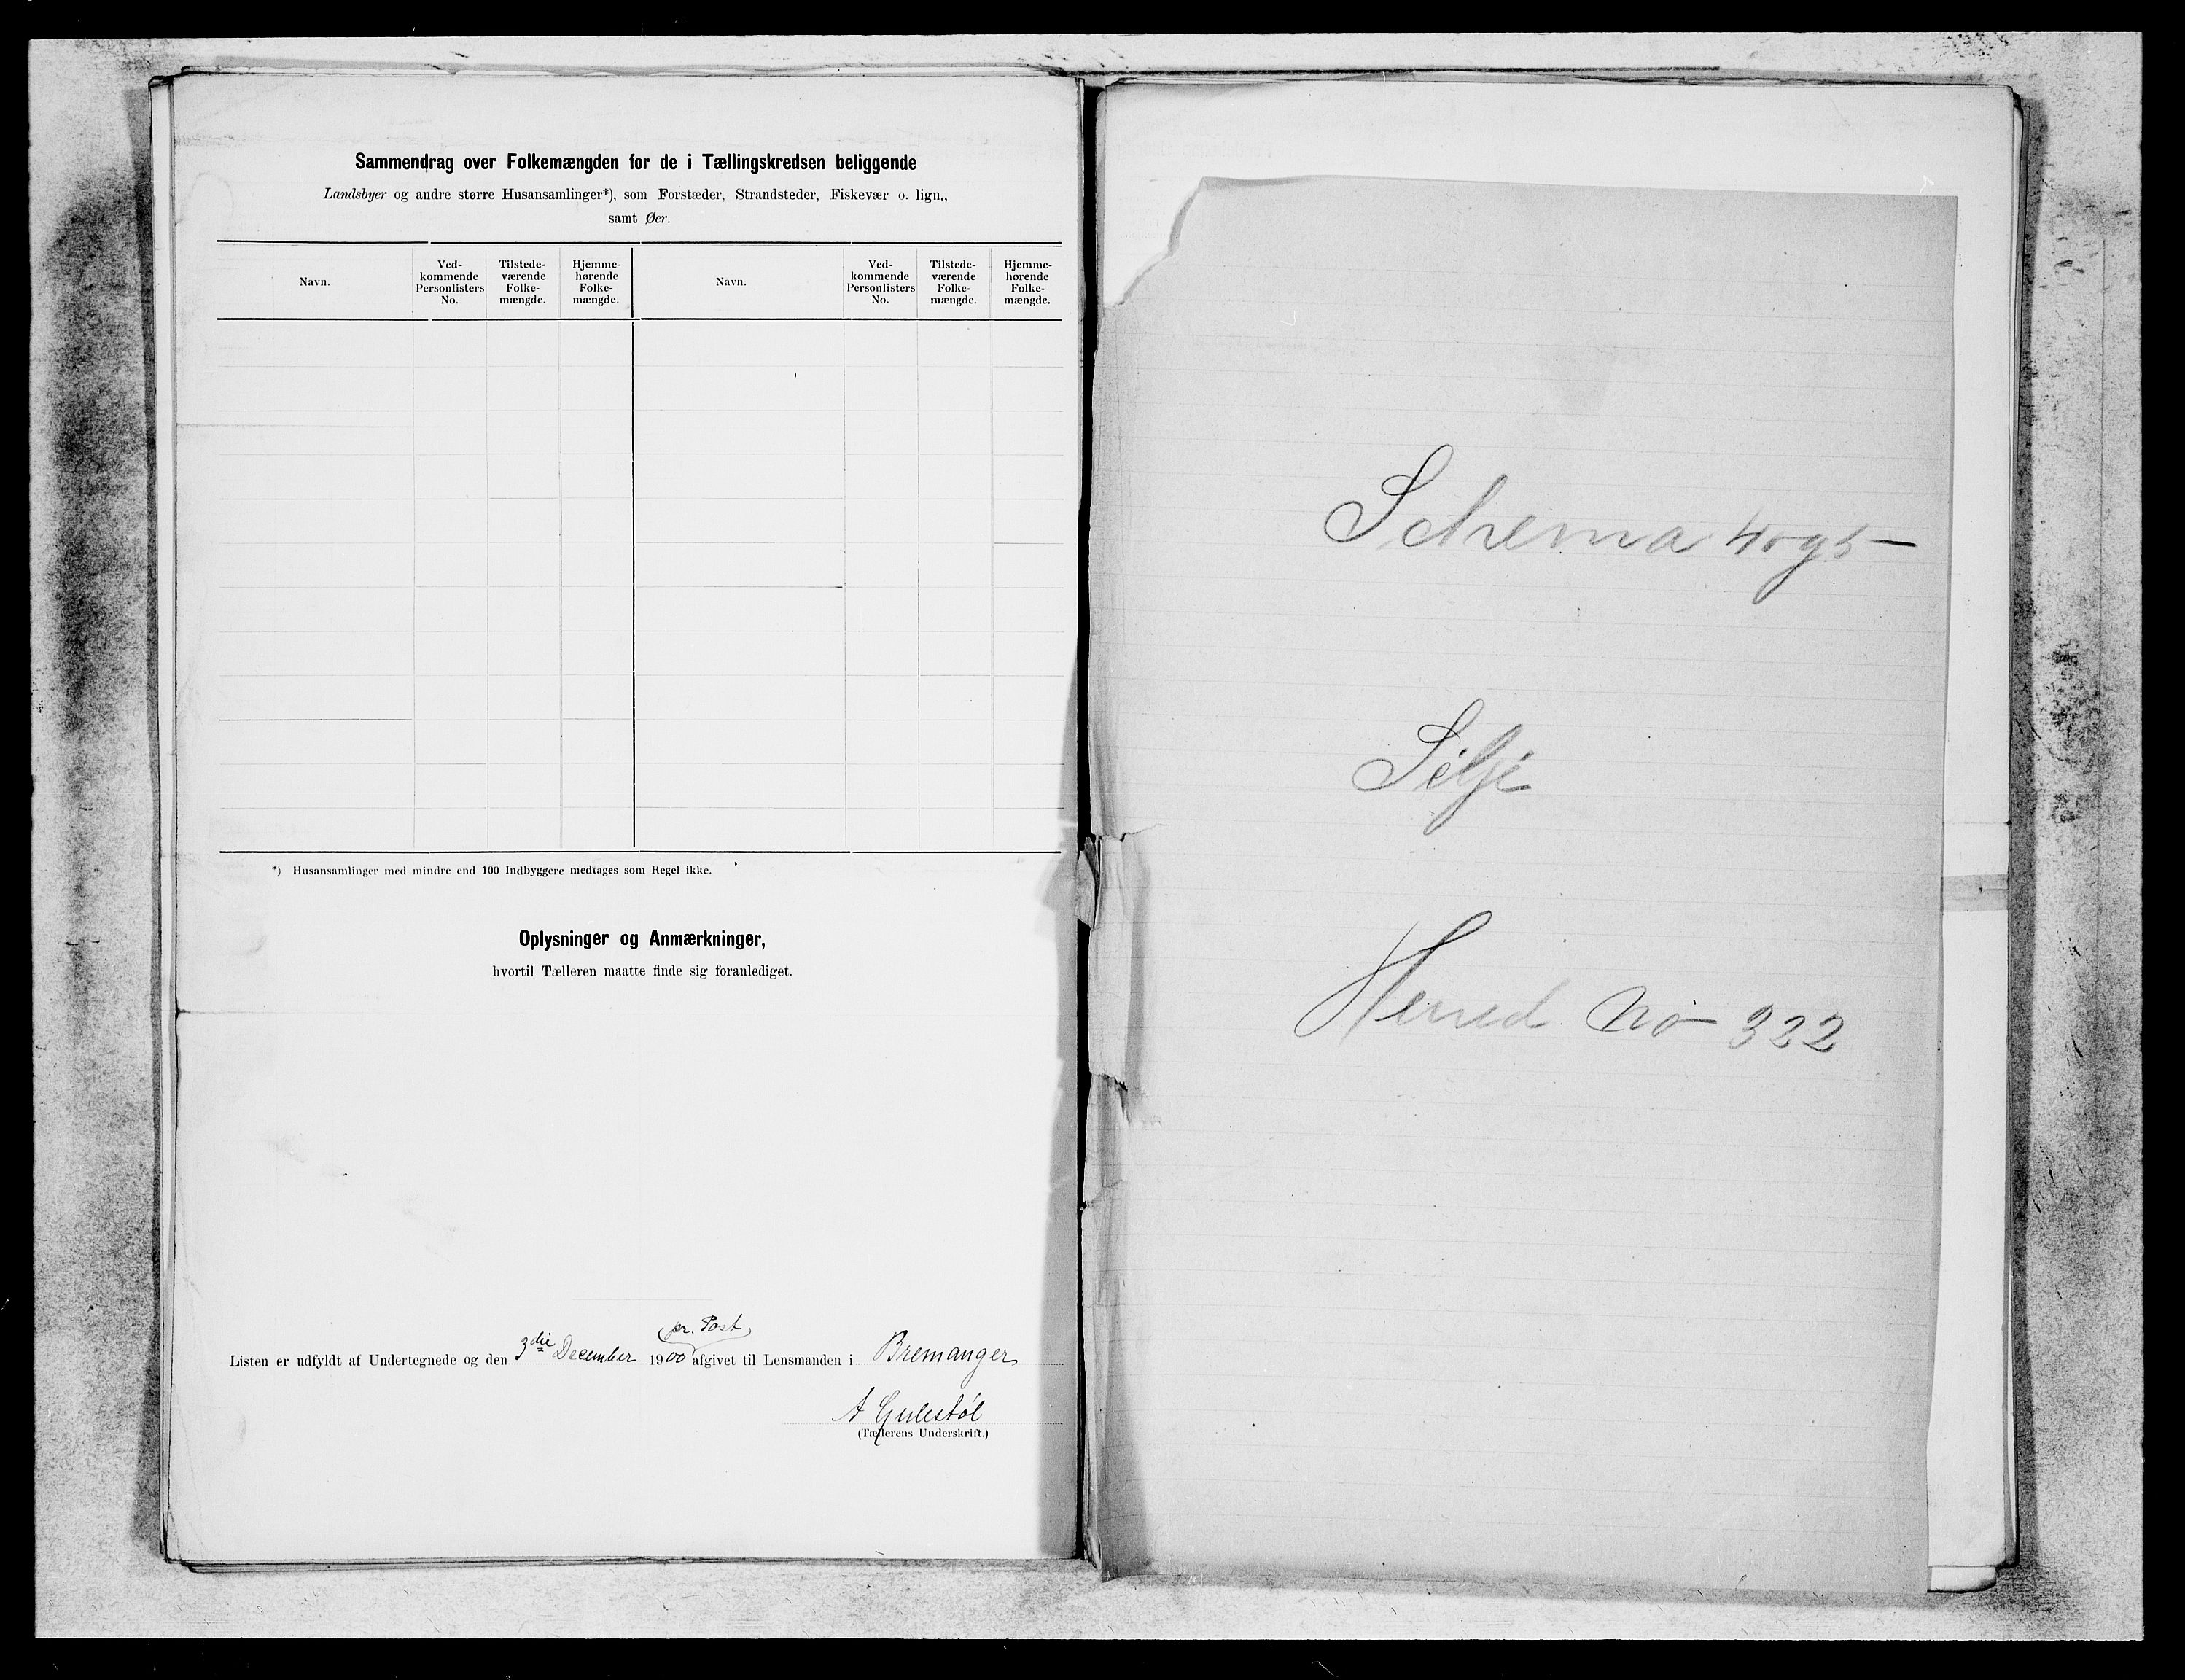 Sammendrag over Folkemængden for de i Tællingskredsen beliggende
Landsbyer og andre større Husansamlinger*), som Forstæder, Strandsteder, Fiskevær o. lign.,
samt Øer.
Navn.
Ved-
kommende
Personlisters
No.
Tilstede-
værende
Folke-
mængde.
Hjemme-
hørende
Folke-
mængde.
Navn.
Ved-
kommende
Personlisters
No.
Tilstede-
værende
Folke-
mængde.
Hjemme-
hørende
Folke-
mængde.
*) Husansamlinger med mindre end 100 Indbyggere medtages som Regel ikke.
Oplysninger og Anmærkninger,
hvortil Tælleren maatte finde sig foranlediget.
(pr. Post)
Listen er udfyldt af Undertegnede og den 3die December 1900 afgivet til Lensmanden i Bremanger
A Gulestøl
(Tællerens Underskrift.)
Schema 4 og 5
Silje
Herred No 322